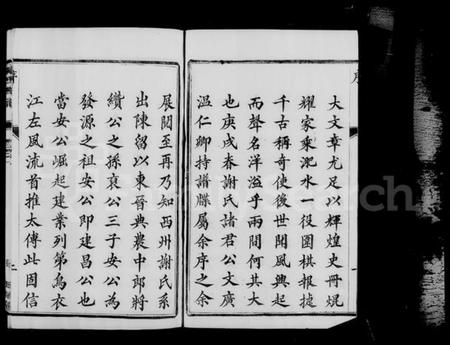 序
大文章尤足以輝煌史冊焜
耀家乘淝水一役圍棋報捷
千古稱奇使後世聞風興起
而聲名洋溢乎兩間何其大
也庚戌春謝氏諸君公文廣
温仁卿持譜牒屬余序之余
展閱至再乃知西州謝氏系
出陳留以東晉典農中郎將
纘公之孫裒公三子安公為
發源之祖安公即建昌公也
當安公崛起建業列第烏衣
江左風流首推太傅此固信